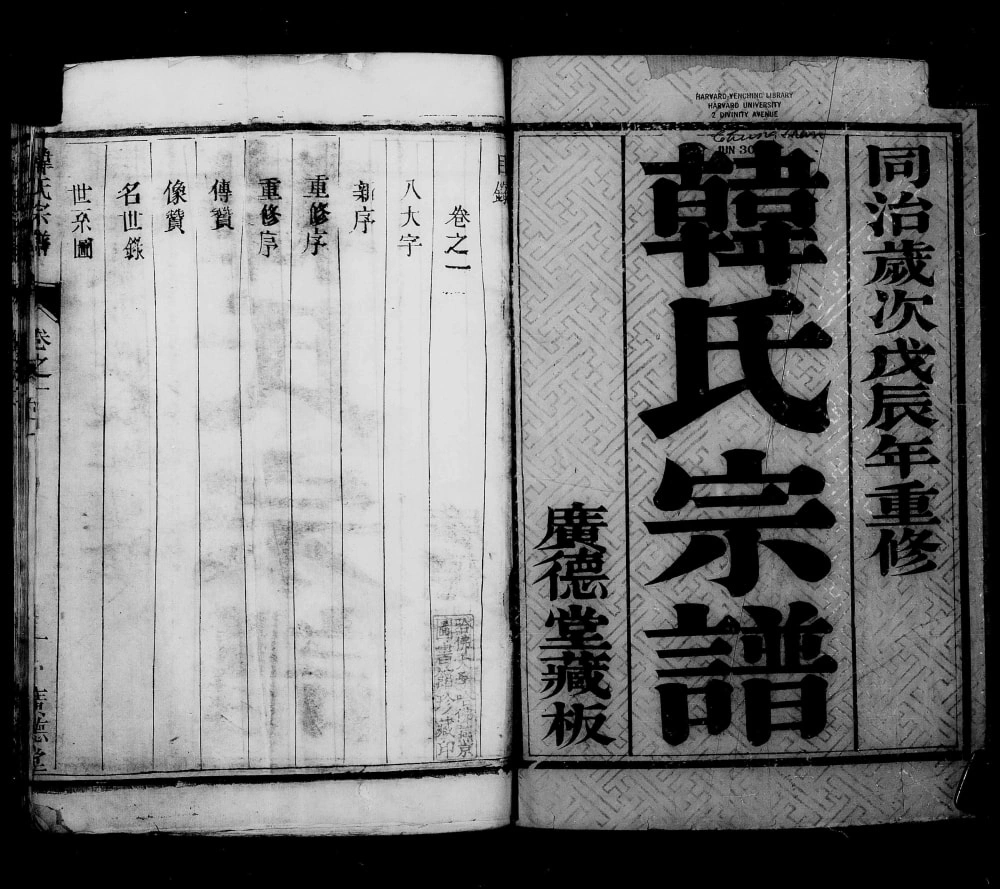 HARVARD-YENCHING LIBRARY
HARVARD UNIVERSITY
2 DIVINITY AVENUE
JUN 30
同治歲次戊辰年重修
韓氏宗譜
廣德堂藏板
目錄
卷之一
八大字
新序
重修序
重修序
傳贊
像贊
名世錄
世系圖
韓氏宗譜
卷之一
廣德堂
哈佛大學哈佛燕京
圖書館珍藏印